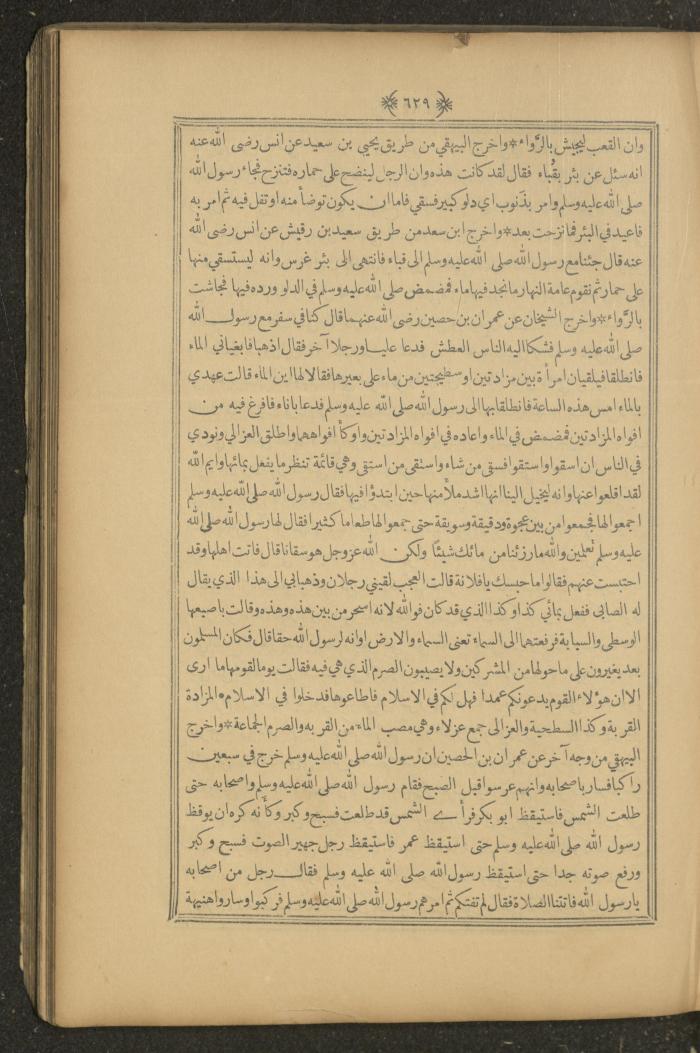 ﴿ ٦٢٩ ﴾
وان القعب ليجيش بالرَّواء * واخرج البيهقي من طريق يحيى بن سعيد عن انس رضى الله عنه
انه سئل عن بئر بقُباء فقال لقد كانت هذه وان الرجل لينضح على حماره فتنزح فجاء رسول الله
صلى الله عليه وسلم وامر بذَنوب اى دلو كبير فسقي فاما ان يكون توضأ منه او تفل فيه ثم امر به
فاعيد في البئر فما نزحت بعد * واخرج ابن سعد من طريق سعيد بن رقيش عن انس رضى الله
عنه قال جئنا مع رسول الله صلى الله عليه وسلم الى قباء فانتهى الى بئر غرس وانه ليستسقي منها
على حمار ثم نقوم عامة النهار ما نجد فيها ماء فمضمض صلى الله عليه وسلم في الدلو ورده فيها فجاشت
بالرَّواء * واخرج الشيخان عن عمران بن حصين رضى الله عنهما قال كنا في سفر مع رسول الله
صلى الله عليه وسلم فشكا اليه الناس العطش فدعا عليا ورجلا آخر فقال اذهبا فابغياني الماء
فانطلقا فيلقيان امرأة بين مزادتين او سطيحتين من ماء على بعيرها فقالا لها اين الماء قالت عهدي
بالماء امس هذه الساعة فانطلقا بها الى رسول الله صلى الله عليه وسلم فدعا باناء فافرغ فيه من
افواه المزادتين فمضمض في الماء واعاده في افواه المزادتين واوكأ افواههما واطلق العزالي ونودي
في الناس ان اسقوا واستقوا فسقى من شاء واستقى من استقى وهي قائمة تنظر ما يفعل بمائها وايم الله
لقد اقلعوا عنها وانه ليخيل الينا انها اشد ملأ منها حين ابتدؤا فيها فقال رسول الله صلى الله عليه وسلم
اجمعوا لها فجمعوا من بين عجوة ودقيقة وسويقة حتى جمعوا لها طعاما كثيرا فقال لها رسول الله صلى الله
عليه وسلم تعلمين والله ما رزئنا من مائك شيئًا ولكن الله عز وجل هو سقانا قال فاتت اهلها وقد
احتبست عنهم فقالوا ما حبسك يا فلانة قالت العجب لقيني رجلان وذهبا بي الى هذا الذي يقال
له الصابى ففعل بمائي كذا وكذا الذي قد كان فوالله لانه اسحر من بين هذه وهذه وقالت باصبعها
الوسطى والسبابة فرفعتهما الى السماء تعنى السماء والارض او انه لرسول الله حقا قال فكان المسلمون
بعد يغيرون على ما حولها من المشركين ولا يصيبون الصرم الذي هي فيه فقالت يوما لقومها ما ارى
الا ان هؤلاء القوم يدعونكم عمدا فهل لكم في الاسلام فاطاعوها فدخلوا في الاسلام * المزادة
القربة وكذا السطحية والعزالى جمع عزلاء وهي مصب الماء من القربه والصرم الجماعة * واخرج
البيهقي من وجه آخر عن عمران بن الحصين ان رسول الله صلى الله عليه وسلم خرج في سبعين
راكبا فسار باصحابه وانهم عرسوا قبل الصبح فقام رسول الله صلى الله عليه وسلم واصحابه حتى
طلعت الشمس فاستيقظ ابو بكر فرأى الشمس قد طلعت فسبح وكبر وكأنه كره ان يوقظ
رسول الله صلى الله عليه وسلم حتى استيقظ عمر فاستيقظ رجل جهير الصوت فسبح وكبر
ورفع صوته جدا حتى استيقظ رسول الله صلى الله عليه وسلم فقال رجل من اصحابه
يا رسول الله فاتتنا الصلاة فقال لم تفتكم ثم امرهم رسول الله صلى الله عليه وسلم فركبوا وساروا هنيهة